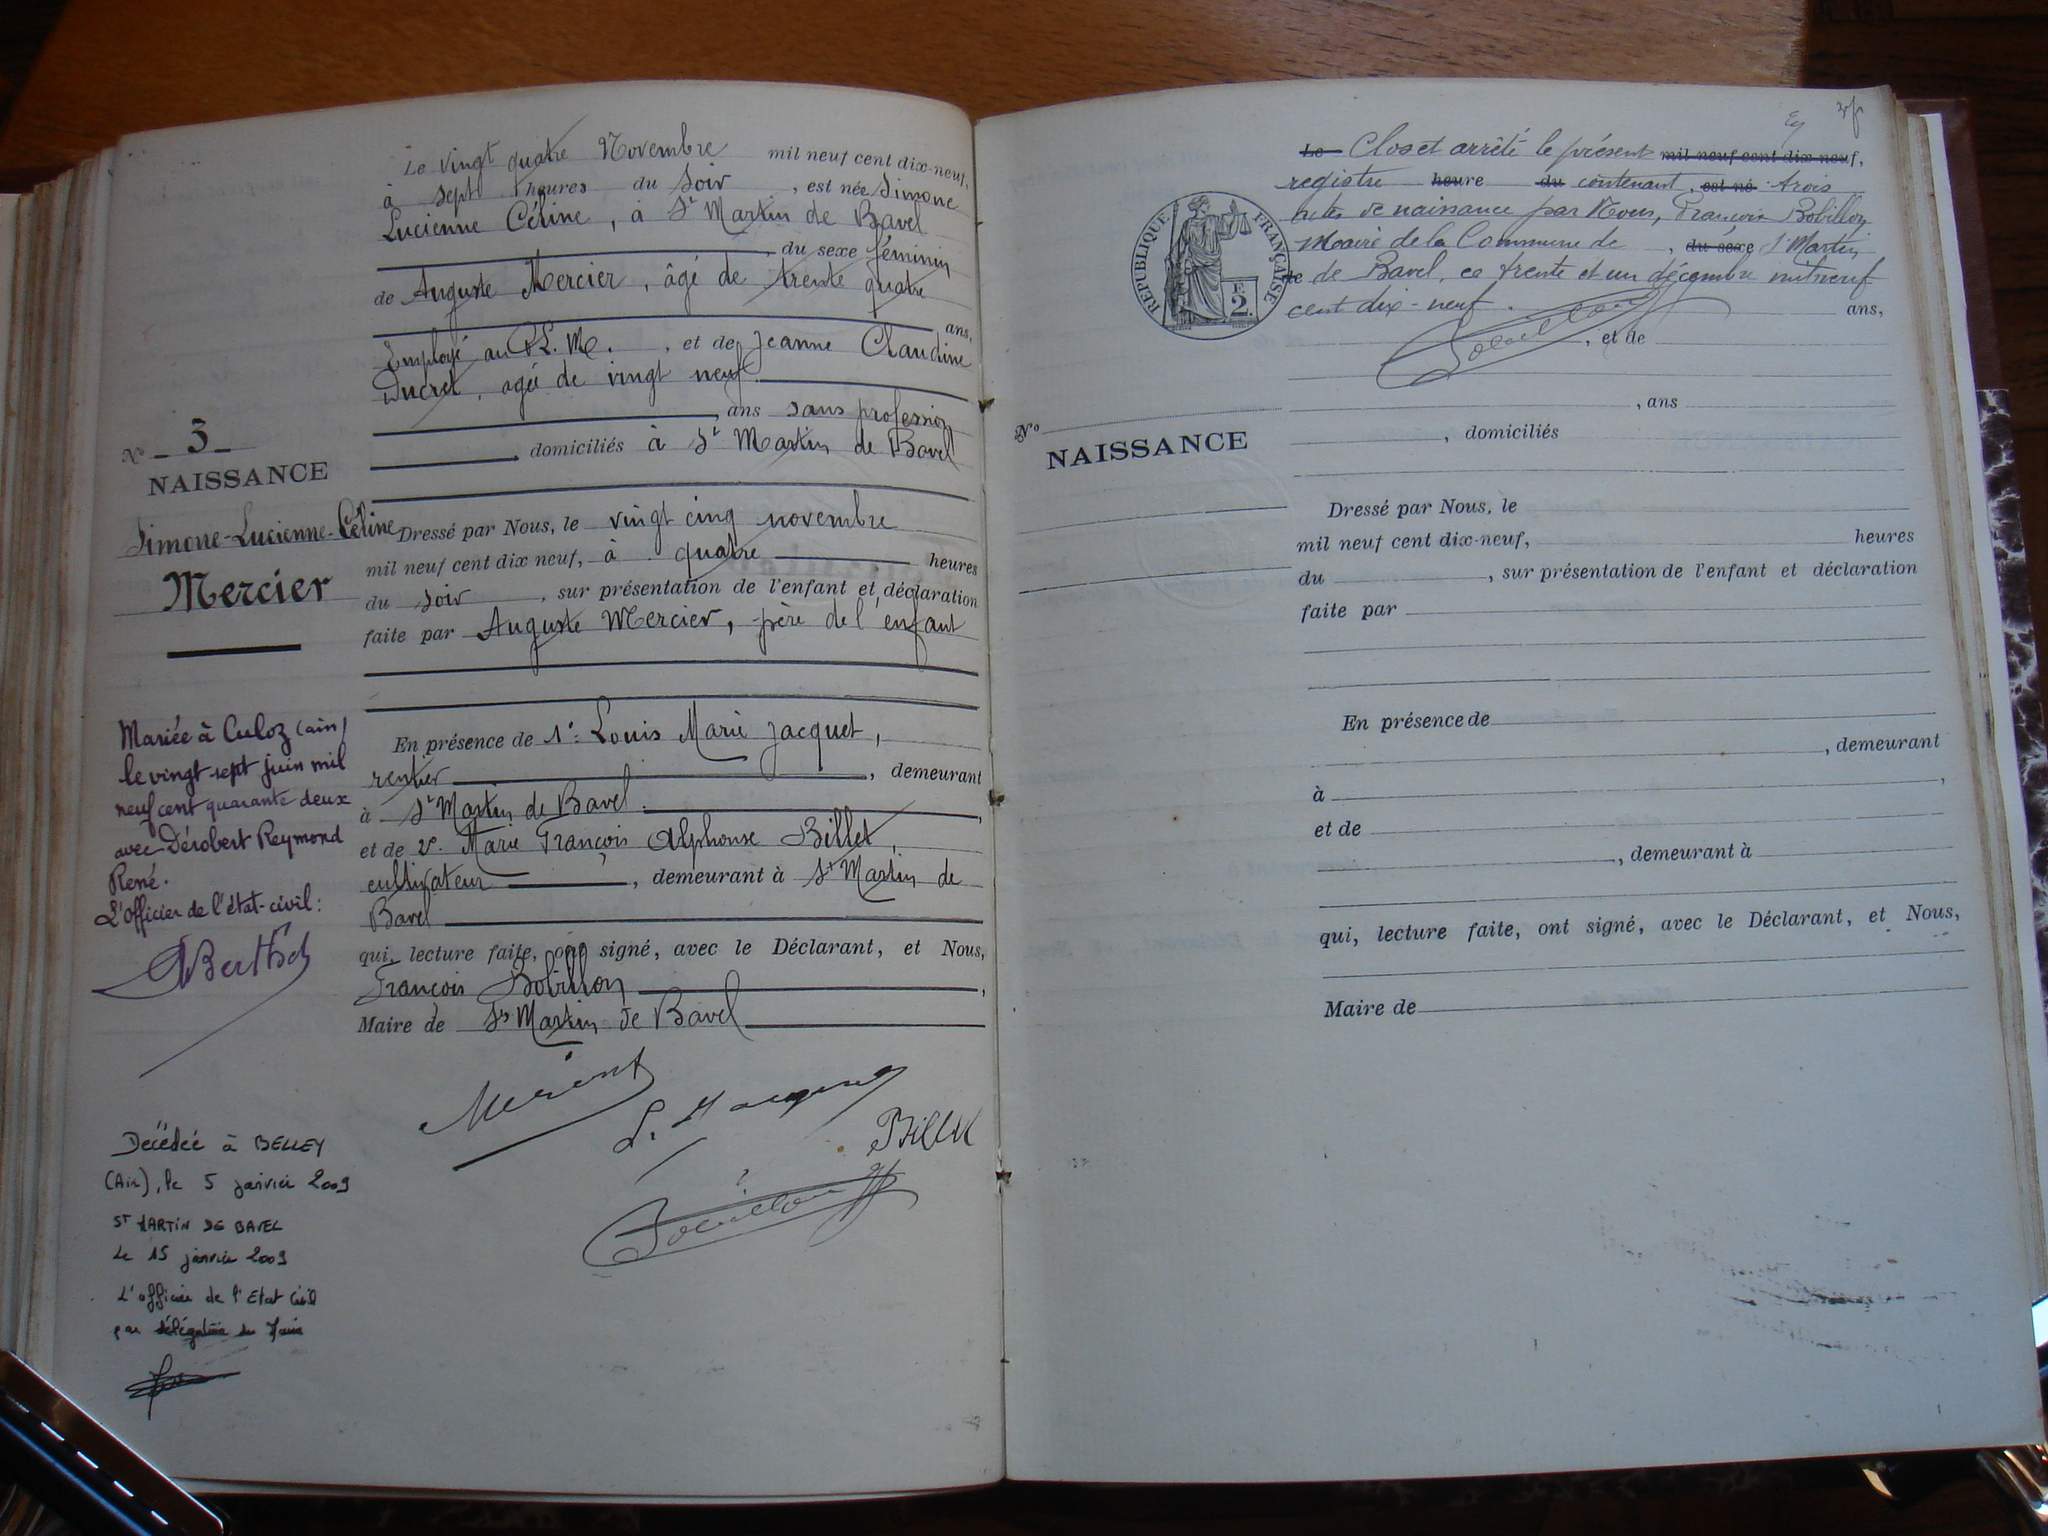 Le vingt quatre Novembre mil neuf cent dix-neuf,
à sept heures du soir, est née Simone
Lucienne Céline, à St Martin de Bavel
, du sexe féminin
de Auguste Mercier, âgé de trente quatre
ans,
Employé au P.L.M., et de Jeanne Claudine
Ducret, agée de vingt neuf
, ans sans profession
, domiciliés à St Martin de Bavel
No 3
NAISSANCE
Simone-Lucienne-Céline
Mercier
Dressé par Nous, le vingt cinq novembre
mil neuf cent dix neuf, à quatre heures
du soir, sur présentation de l'enfant et déclaration
faite par Auguste Mercier, père de l'enfant
En présence de 1º: Louis Marie Jacquet,
rentier, demeurant
à St Martin de Bavel.,
et de 2º. Marie François Alphonse Billet,
cultivateur, demeurant à St Martin de
Bavel
qui, lecture faite, ont signé, avec le Déclarant, et Nous,
François Bobillon,
Maire de St Martin de Bavel
Mariée à Culoz (ain)
le vingt-sept juin mil
neuf cent quarante deux
avec Dérobert Reymond
René.
L'officier de l'état-civil:
Berthet
Décédée à BELLEY
(Ain), le 5 janvier 2009
ST MARTIN DE BAVEL
Le 15 janvier 2009
L'officier de l'Etat Civil
par délégation du Maire
Billet
Bobillon
Le Clos et arrêté le présent mil neuf cent dix-neuf,
registre heure du contenant, est né trois
actes de naissance par Nous, François Bobillon
Maire de la Commune de, du sexe St Martin
de de Bavel, ce trente et un décembre mil neuf
cent dix-neuf. ans,
Bobillon, et de
RÉPUBLIQUE FRANÇAISE
F.
2.
, ans
No
NAISSANCE
, domiciliés
Dressé par Nous, le
mil neuf cent dix-neuf, heures
du, sur présentation de l'enfant et déclaration
faite par
En présence de
, demeurant
à,
et de
, demeurant à
qui, lecture faite, ont signé, avec le Déclarant, et Nous,
Maire de